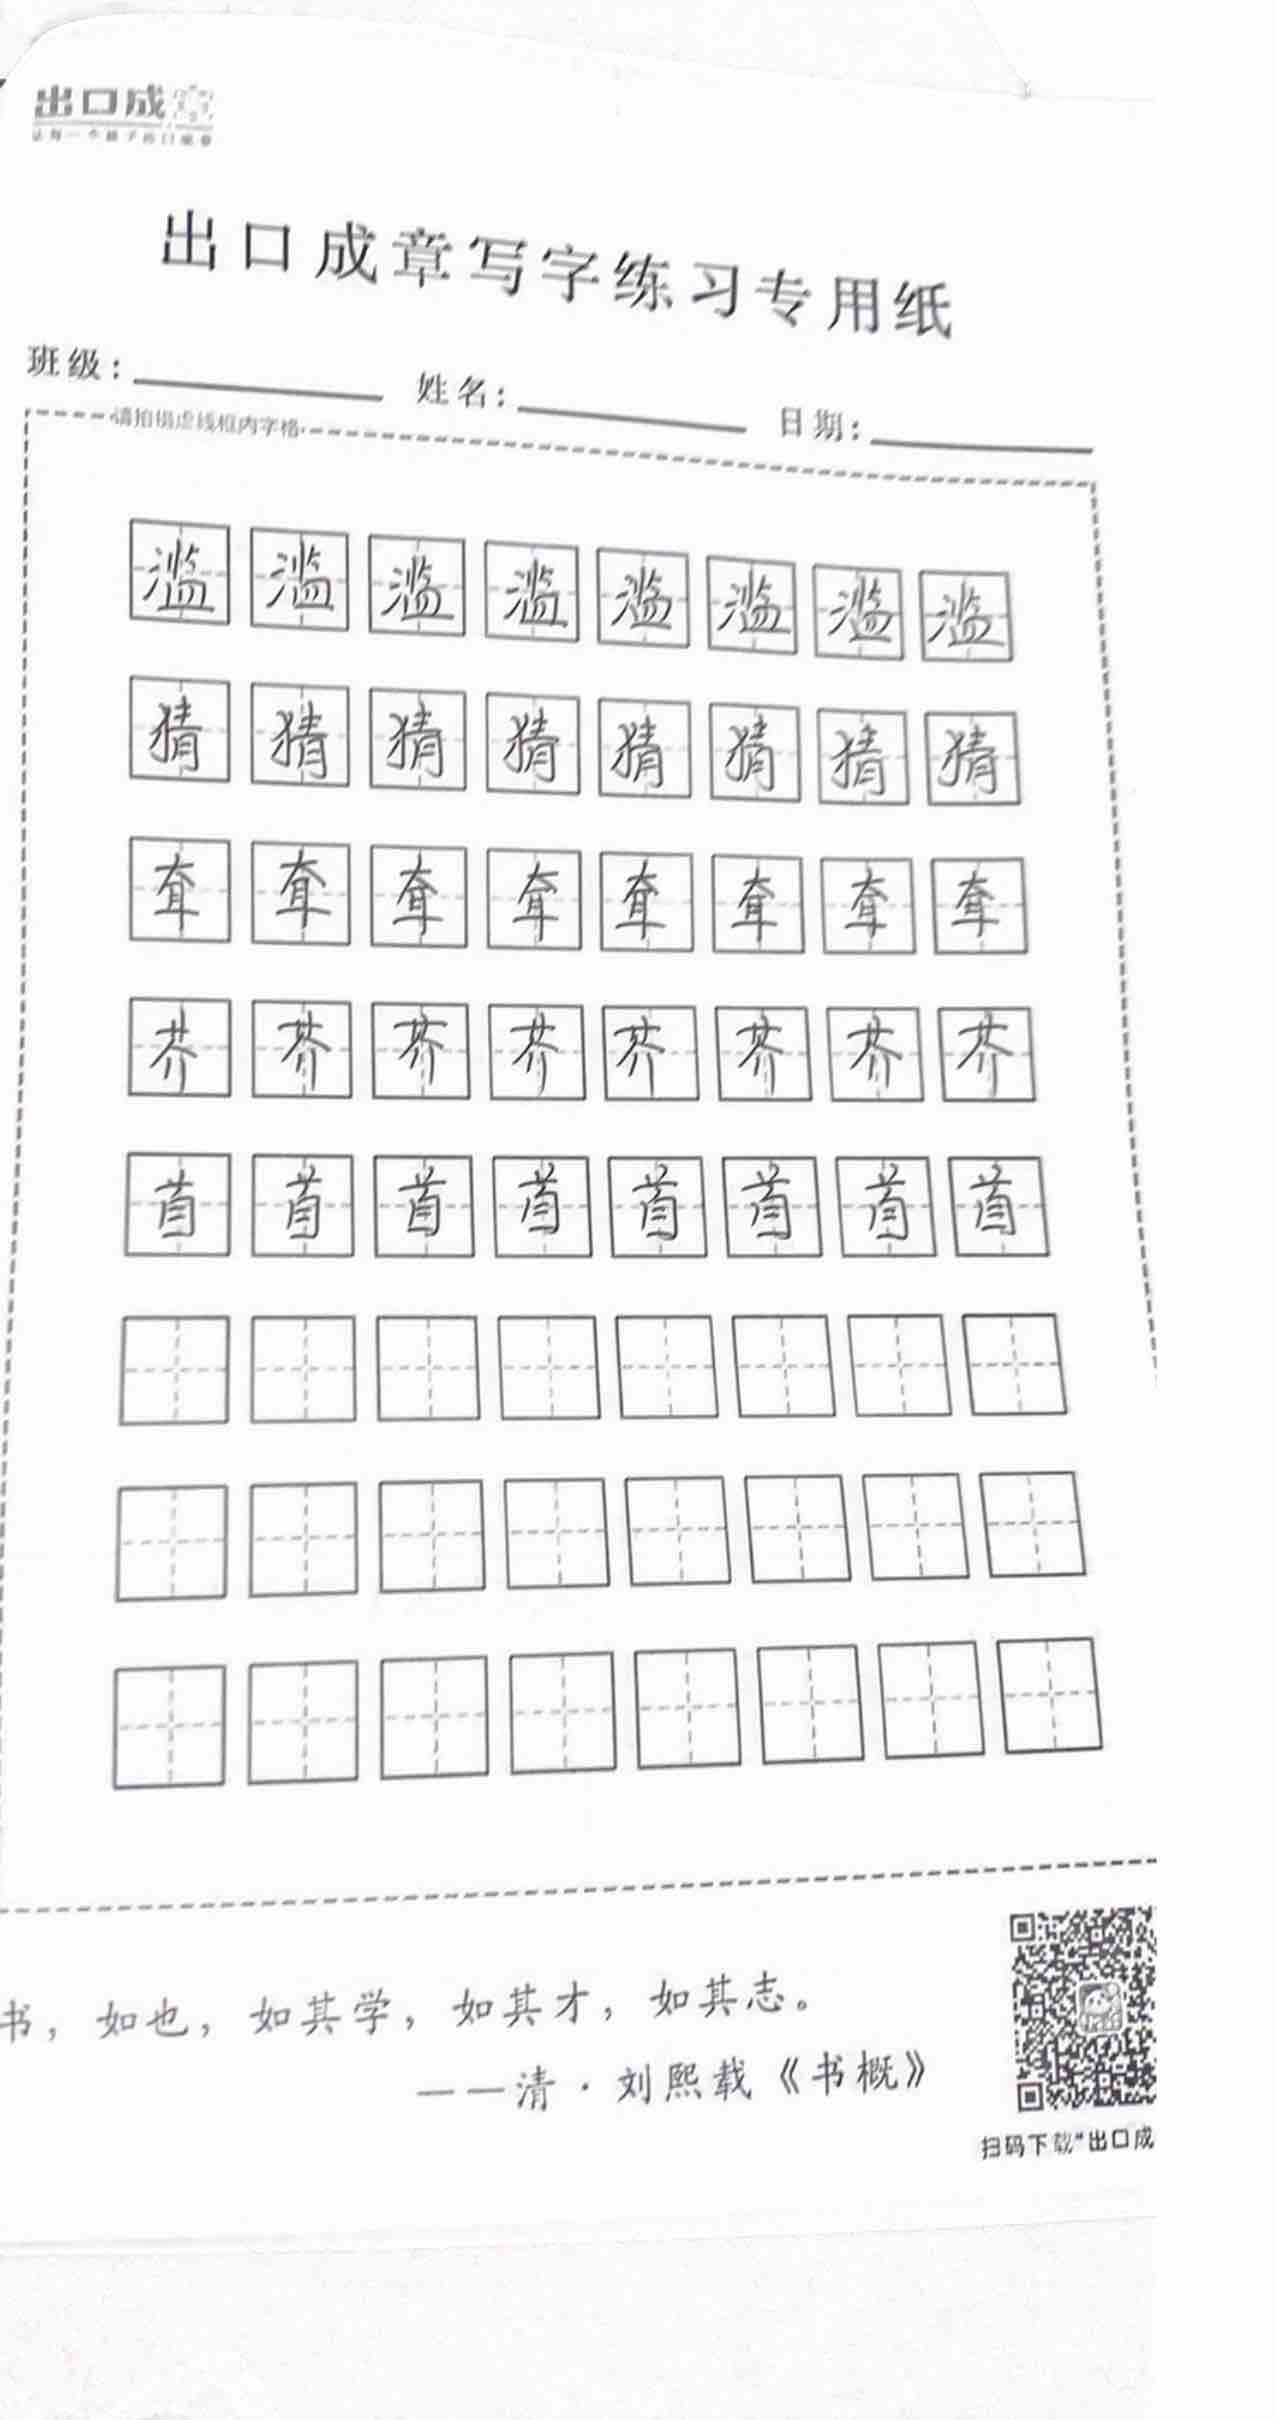 出口成
让每一个孩子出口成章
出口成章写字练习专用纸
班级： 姓名： 日期：
请拍摄虚线框内字格
滥 滥 滥 滥 滥 滥 滥 滥
猜 猜 猜 猜 猜 猜 猜 猜
耷 耷 耷 耷 耷 耷 耷 耷
芥 芥 芥 芥 芥 芥 芥 芥
首 首 首 首 首 首 首 首
书，如也，如其学，如其才，如其志。
——清·刘熙载《书概》
扫码下载“出口成